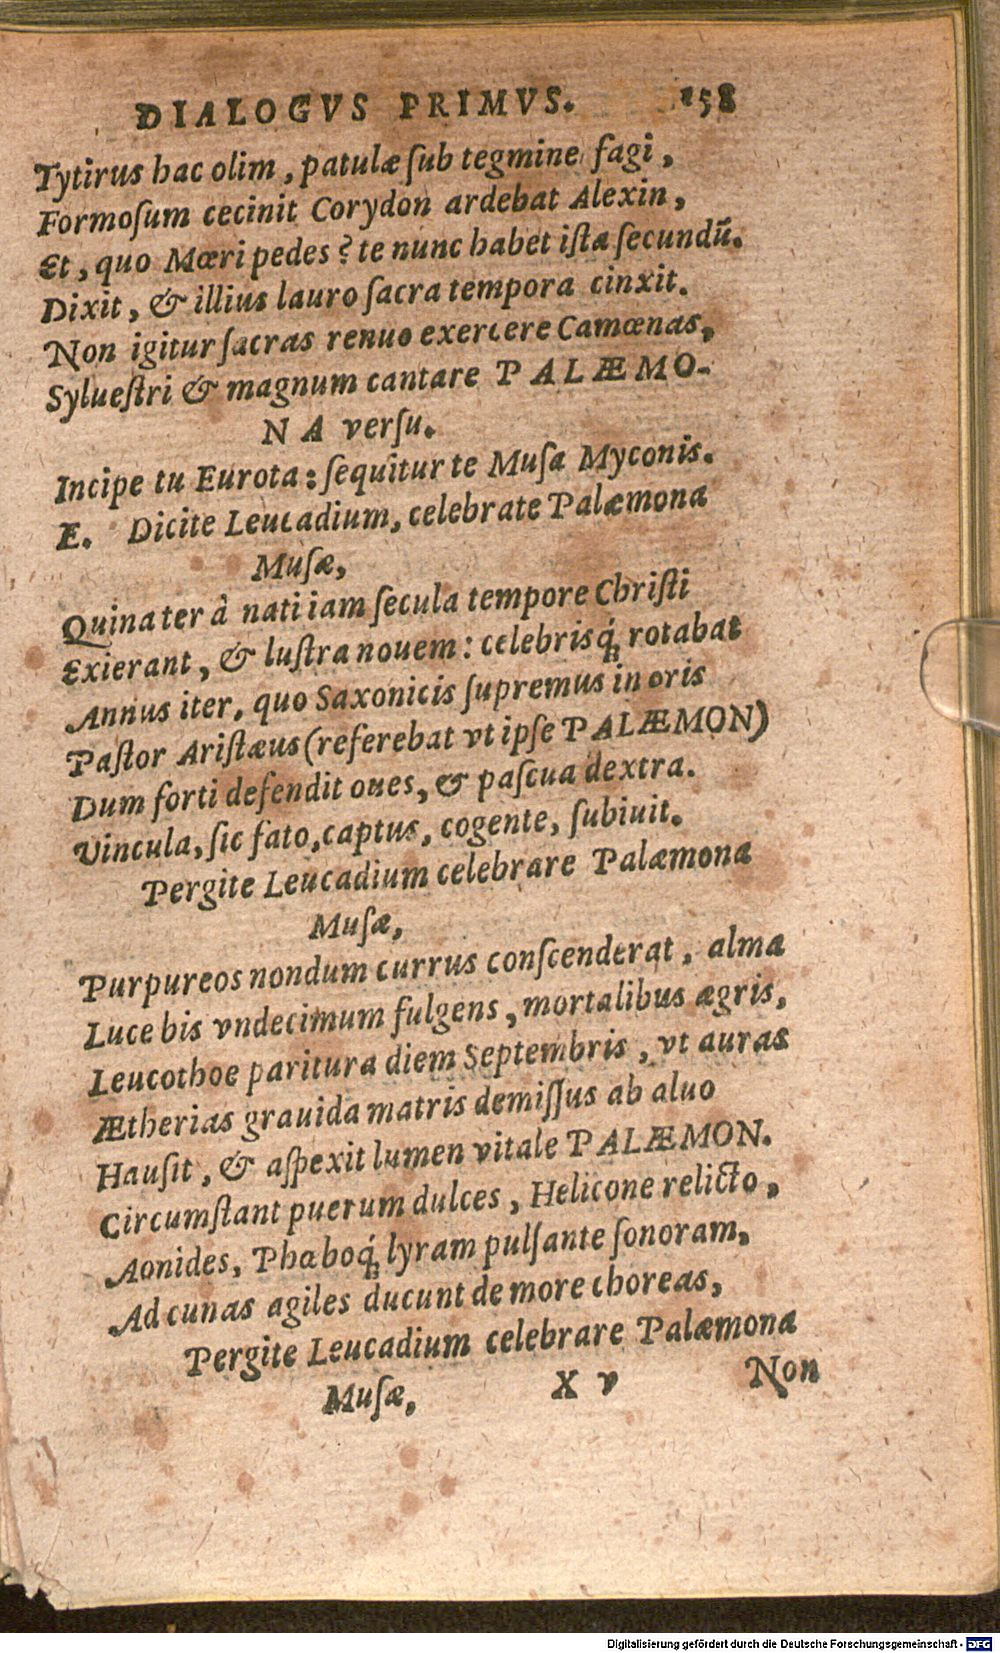 DIALOGVS PRIMVS. 158
Tytirus hac olim, patulæ ſub tegmine fagi,
Formoſum cecinit Corydon ardebat Alexin,
Et, quo Mœri pedes? te nunc habet iſta ſecundũ.
Dixit, & illius lauro ſacra tempora cinxit.
Non igitur ſacras renuo exercere Camœnas,
Sylueſtri & magnum cantare PALÆMO-
NA verſu.
Incipe tu Eurota: ſequitur te Muſa Myconis.
E. Dicite Leucadium, celebrate Palæmona
Muſæ,
Quina ter à nati iam ſecula tempore Chriſti
Exierant, & luſtra nouem: celebrisq́ꝫ rotabat
Annus iter, quo Saxonicis ſupremus in oris
Paſtor Ariſtæus (referebat vt ipſe PALÆMON)
Dum forti defendit oues, & paſcua dextra.
Vincula, ſic fato, captus, cogente, ſubiuit.
Pergite Leucadium celebrare Palæmona
Muſæ,
Purpureos nondum currus conſcenderat, alma
Luce bis vndecimum fulgens, mortalibus ægris,
Leucothoe paritura diem Septembris, vt auras
Ætherias grauida matris demiſſus ab aluo
Hauſit, & aſpexit lumen vitale PALÆMON.
Circumſtant puerum dulces, Helicone relicto,
Aonides, Phœboq́ꝫ lyram pulſante ſonoram,
Ad cunas agiles ducunt de more choreas,
Pergite Leucadium celebrare Palæmona
Muſæ, X v Non
Digitalisierung gefördert durch die Deutsche Forschungsgemeinschaft - DFG